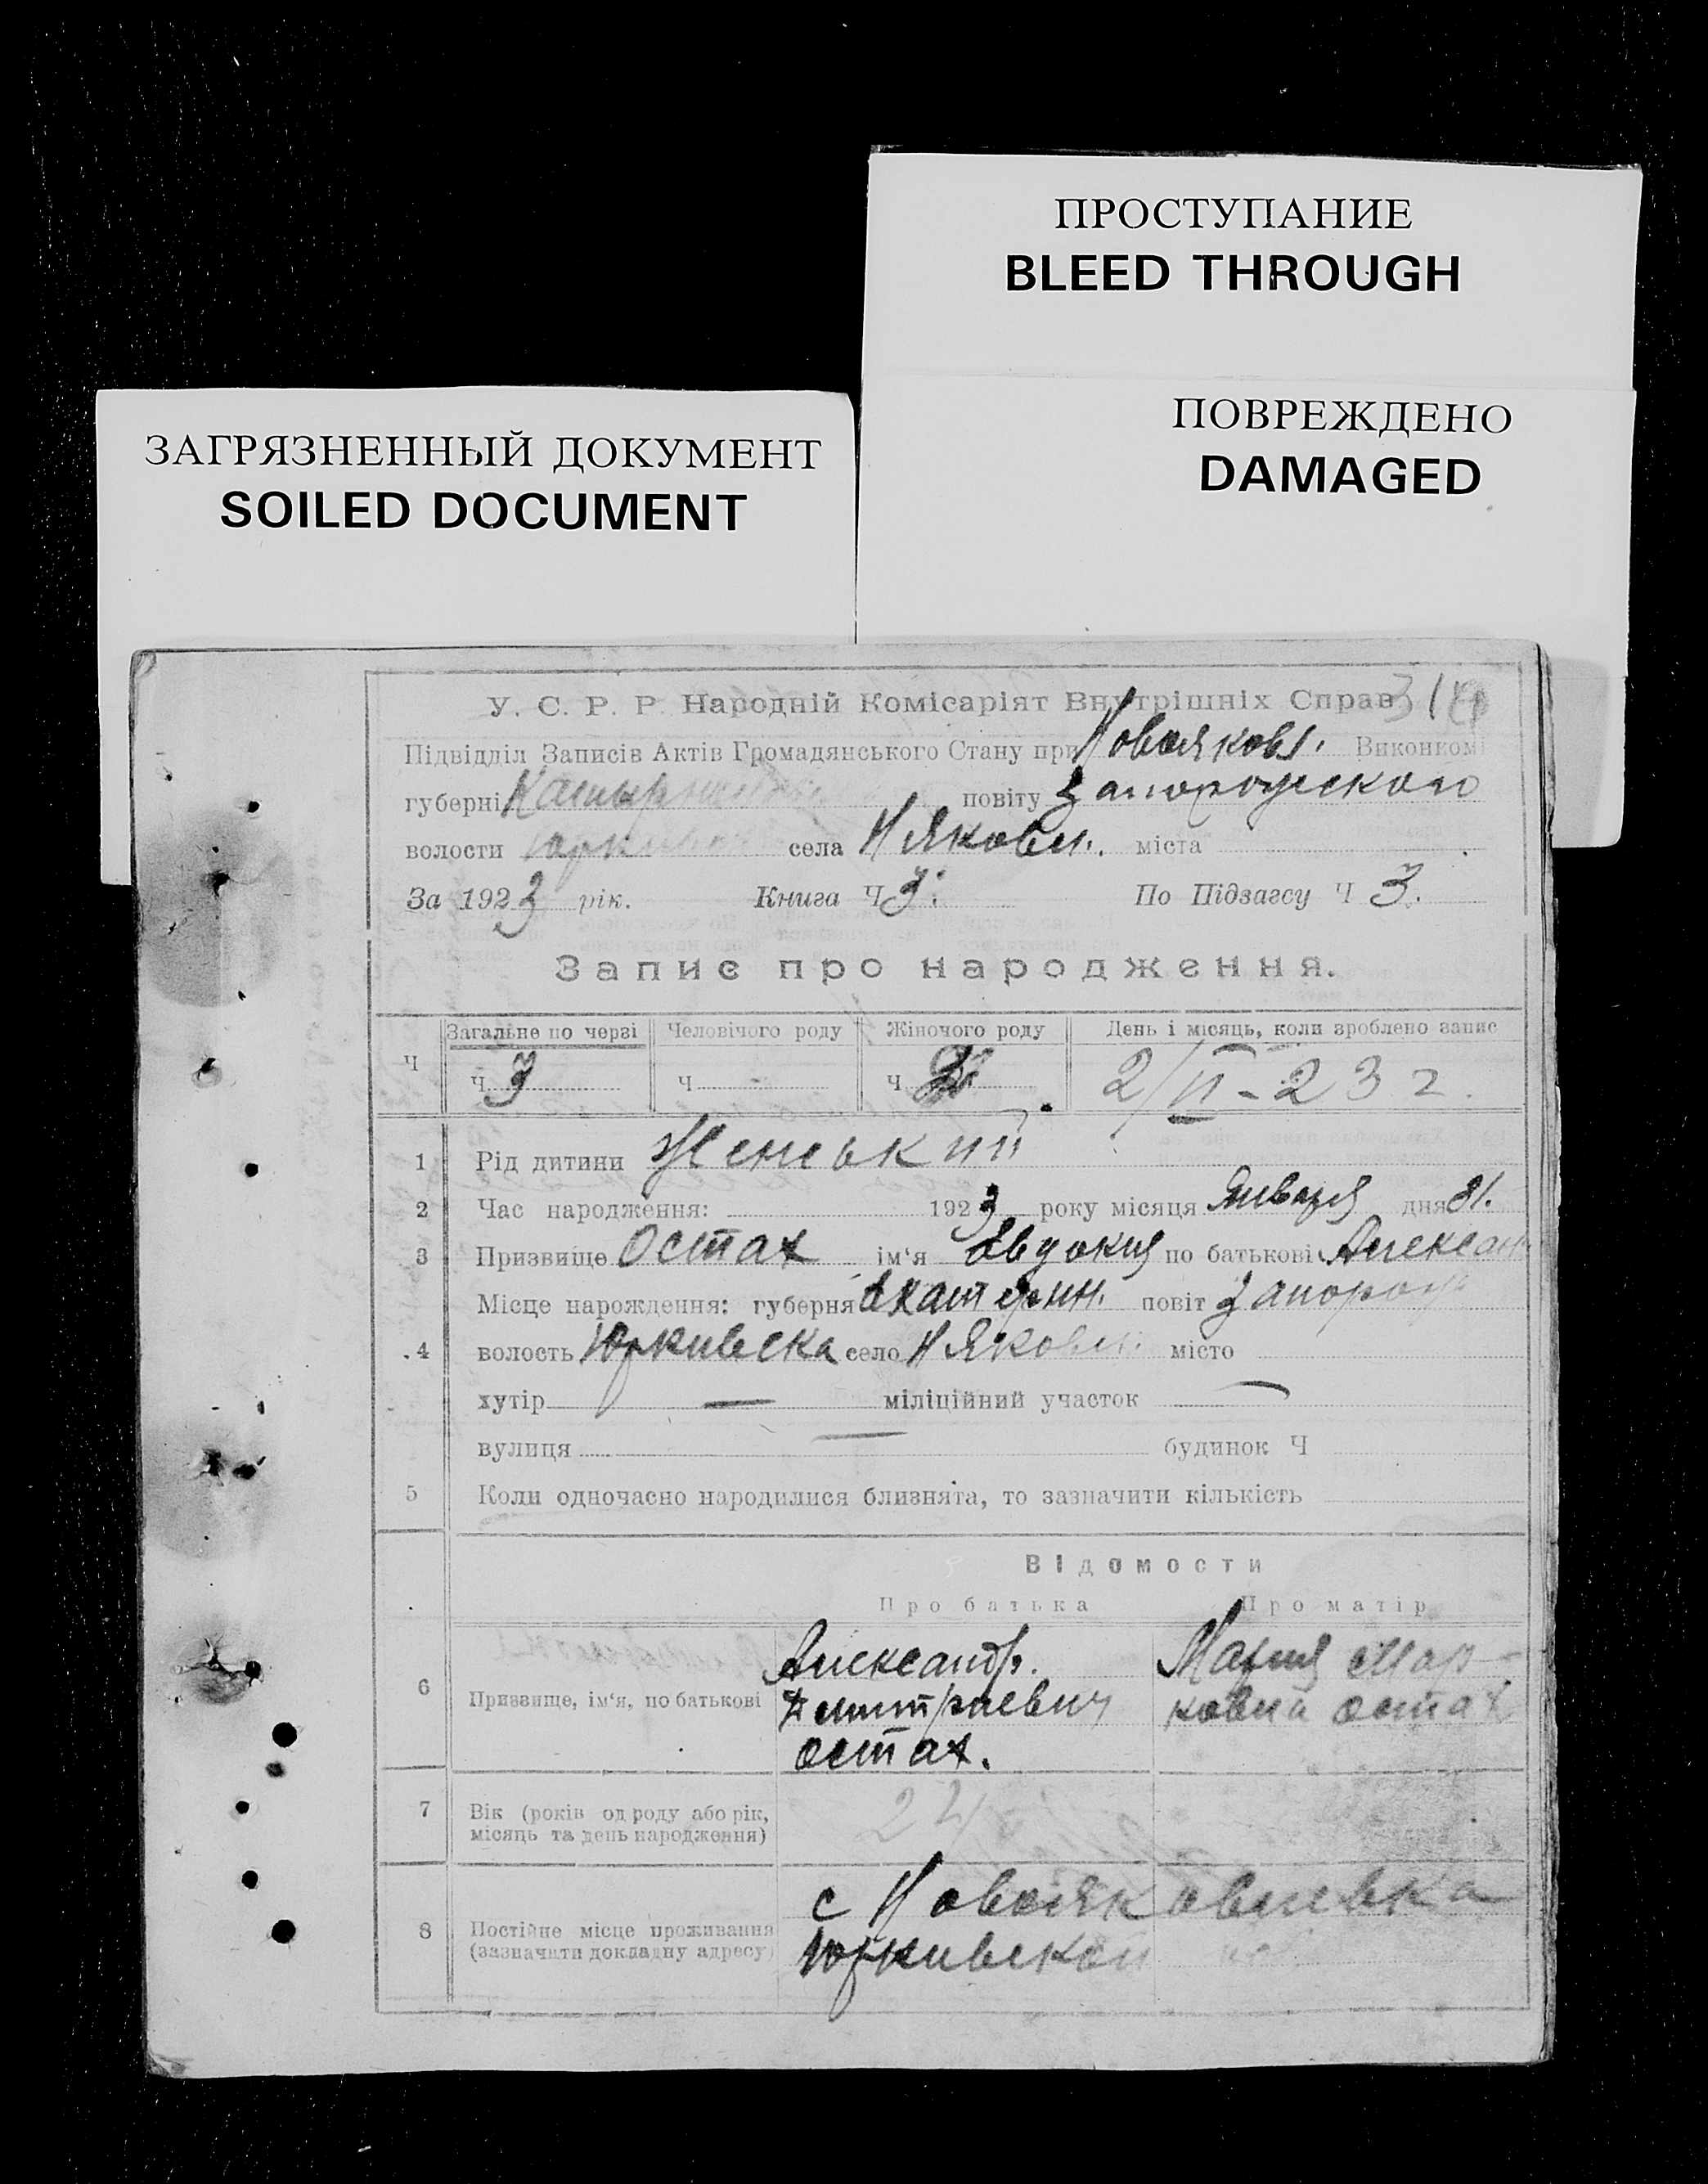 ПРОСТУПАНИЕ
BLEED THROUGH
ПОВРЕЖДЕНО
DAMAGED
ЗАГРЯЗНЕННЫЙ ДОКУМЕНТ
SOILED DOCUMENT
У. С. Р. Р. Народній Комісаріят Внутрішніх Справ
Підвідділ Записів Актів Громадянського Стану при Новояковл. Виконкомі
губерні повіту Запорожского
волости села Н Яковл. міста
За 1923 рік. Книга Ч 3. По Підзагсу Ч 3.
Запис про народження.
Ч Загальне по черзі Человічого роду Жіночого роду День і місяць, коли зроблено запис
Ч 3 Ч - Ч 2/II-23 г.
1 Рід дитини Женський
2 Час народження: 1923 року місяця Января дня 31.
3 Призвище Остах ім'я Евдокия по батькові Алексан
Місце нарождення: губерня Екатерин. повіт Запорож
4 волость Юркивска село Н Яковл. місто
хутір — міліційний участок —
вулиця — будинок Ч
5 Коли одночасно народилися близнята, то зазначити кількість
Відомости
Про батька Про матір
6 Призвище, ім'я, по батькові Александр. Мария Мар-
Дмитриевич ковна Остах
Остах.
7 Вік (років од роду або рік, 24
місяць та день народження)
8 Постійне місце проживання с Новояковлевка
(зазначити докладну адресу) Юркивской